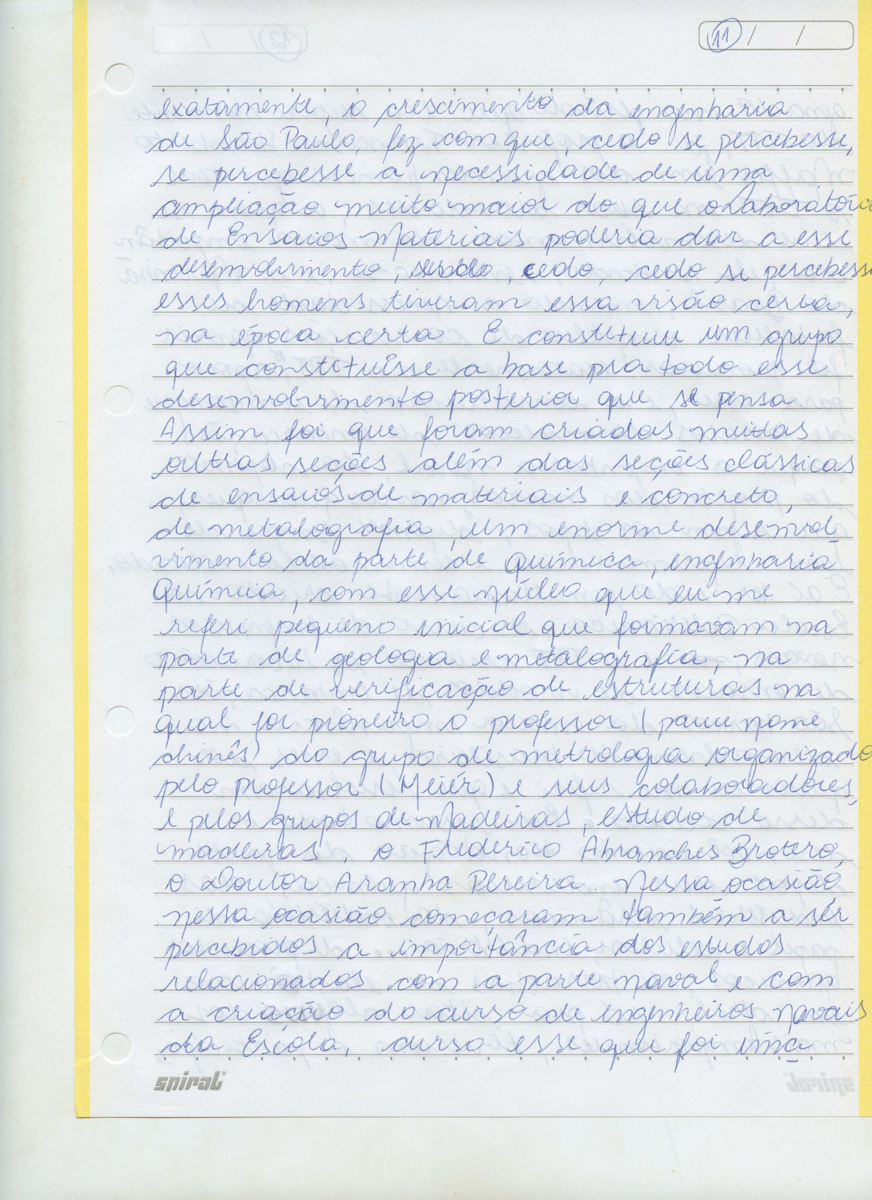 11 / /
exatamente, o crescimento da engenharia
de São Paulo, fez com que, cedo se percebesse,
se percebesse a necessidade de uma
ampliação muito maior do que o Laboratório
de Ensaios Materiais poderia dar a esse
desenvolvimento, cedo, cedo se percebess
esses homens tiveram essa visão certa,
na época certa. E constituiu um grupo
que constituísse a base pra todo esse
desenvolvimento posterior que se pensa.
Assim foi que foram criadas muitas
outras seções além das seções clássicas
de ensaios de materiais e concreto,
de metalografia, um enorme desenvol-
vimento da parte de Química, engenharia
Química, com esse núcleo que eu me
referi pequeno inicial que formavam na
parte de geologia e metalografia, na
parte de verificação de estruturas na
qual foi pioneiro o professor (parece nome
chinês) do grupo de metrologia organizado
pelo professor (Meiér) e seus colaboradores,
e pelos grupos de Madeiras, estudo de
madeiras, o Frederico Abranches Brotero,
o Doutor Aranha Pereira. Nessa ocasião,
nessa ocasião começaram também a sér
percebidos a importância dos estudos
relacionados com a parte naval e com
a criação do curso de engenheiros navais
da Escola, curso esse que foi uma
spiral